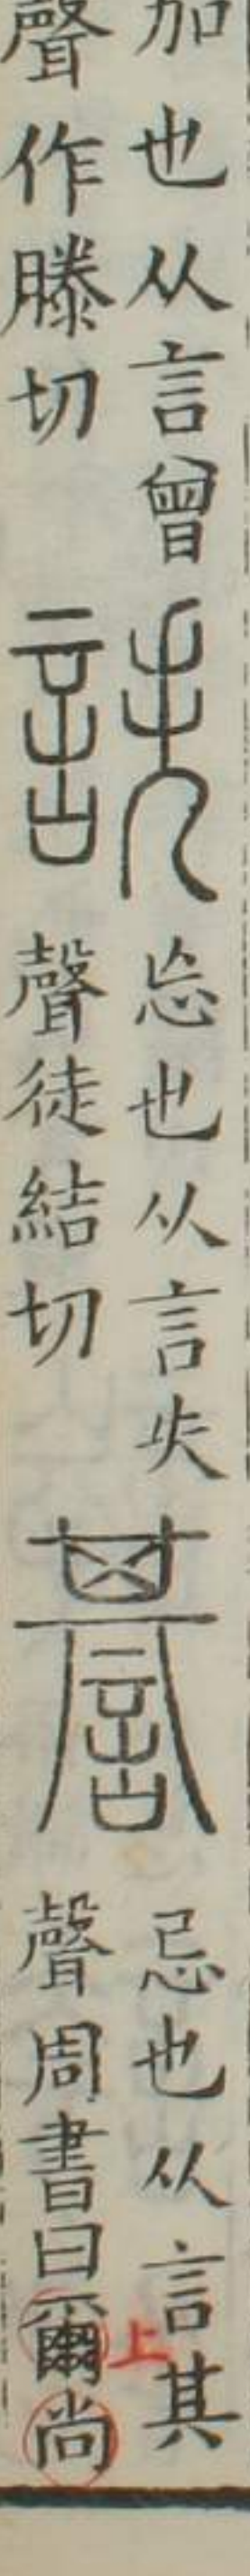 加也从言曾
聲作滕切
詄
忘也从言失
聲徒結切
諅
忌也从言其
聲周書曰爾尚
上